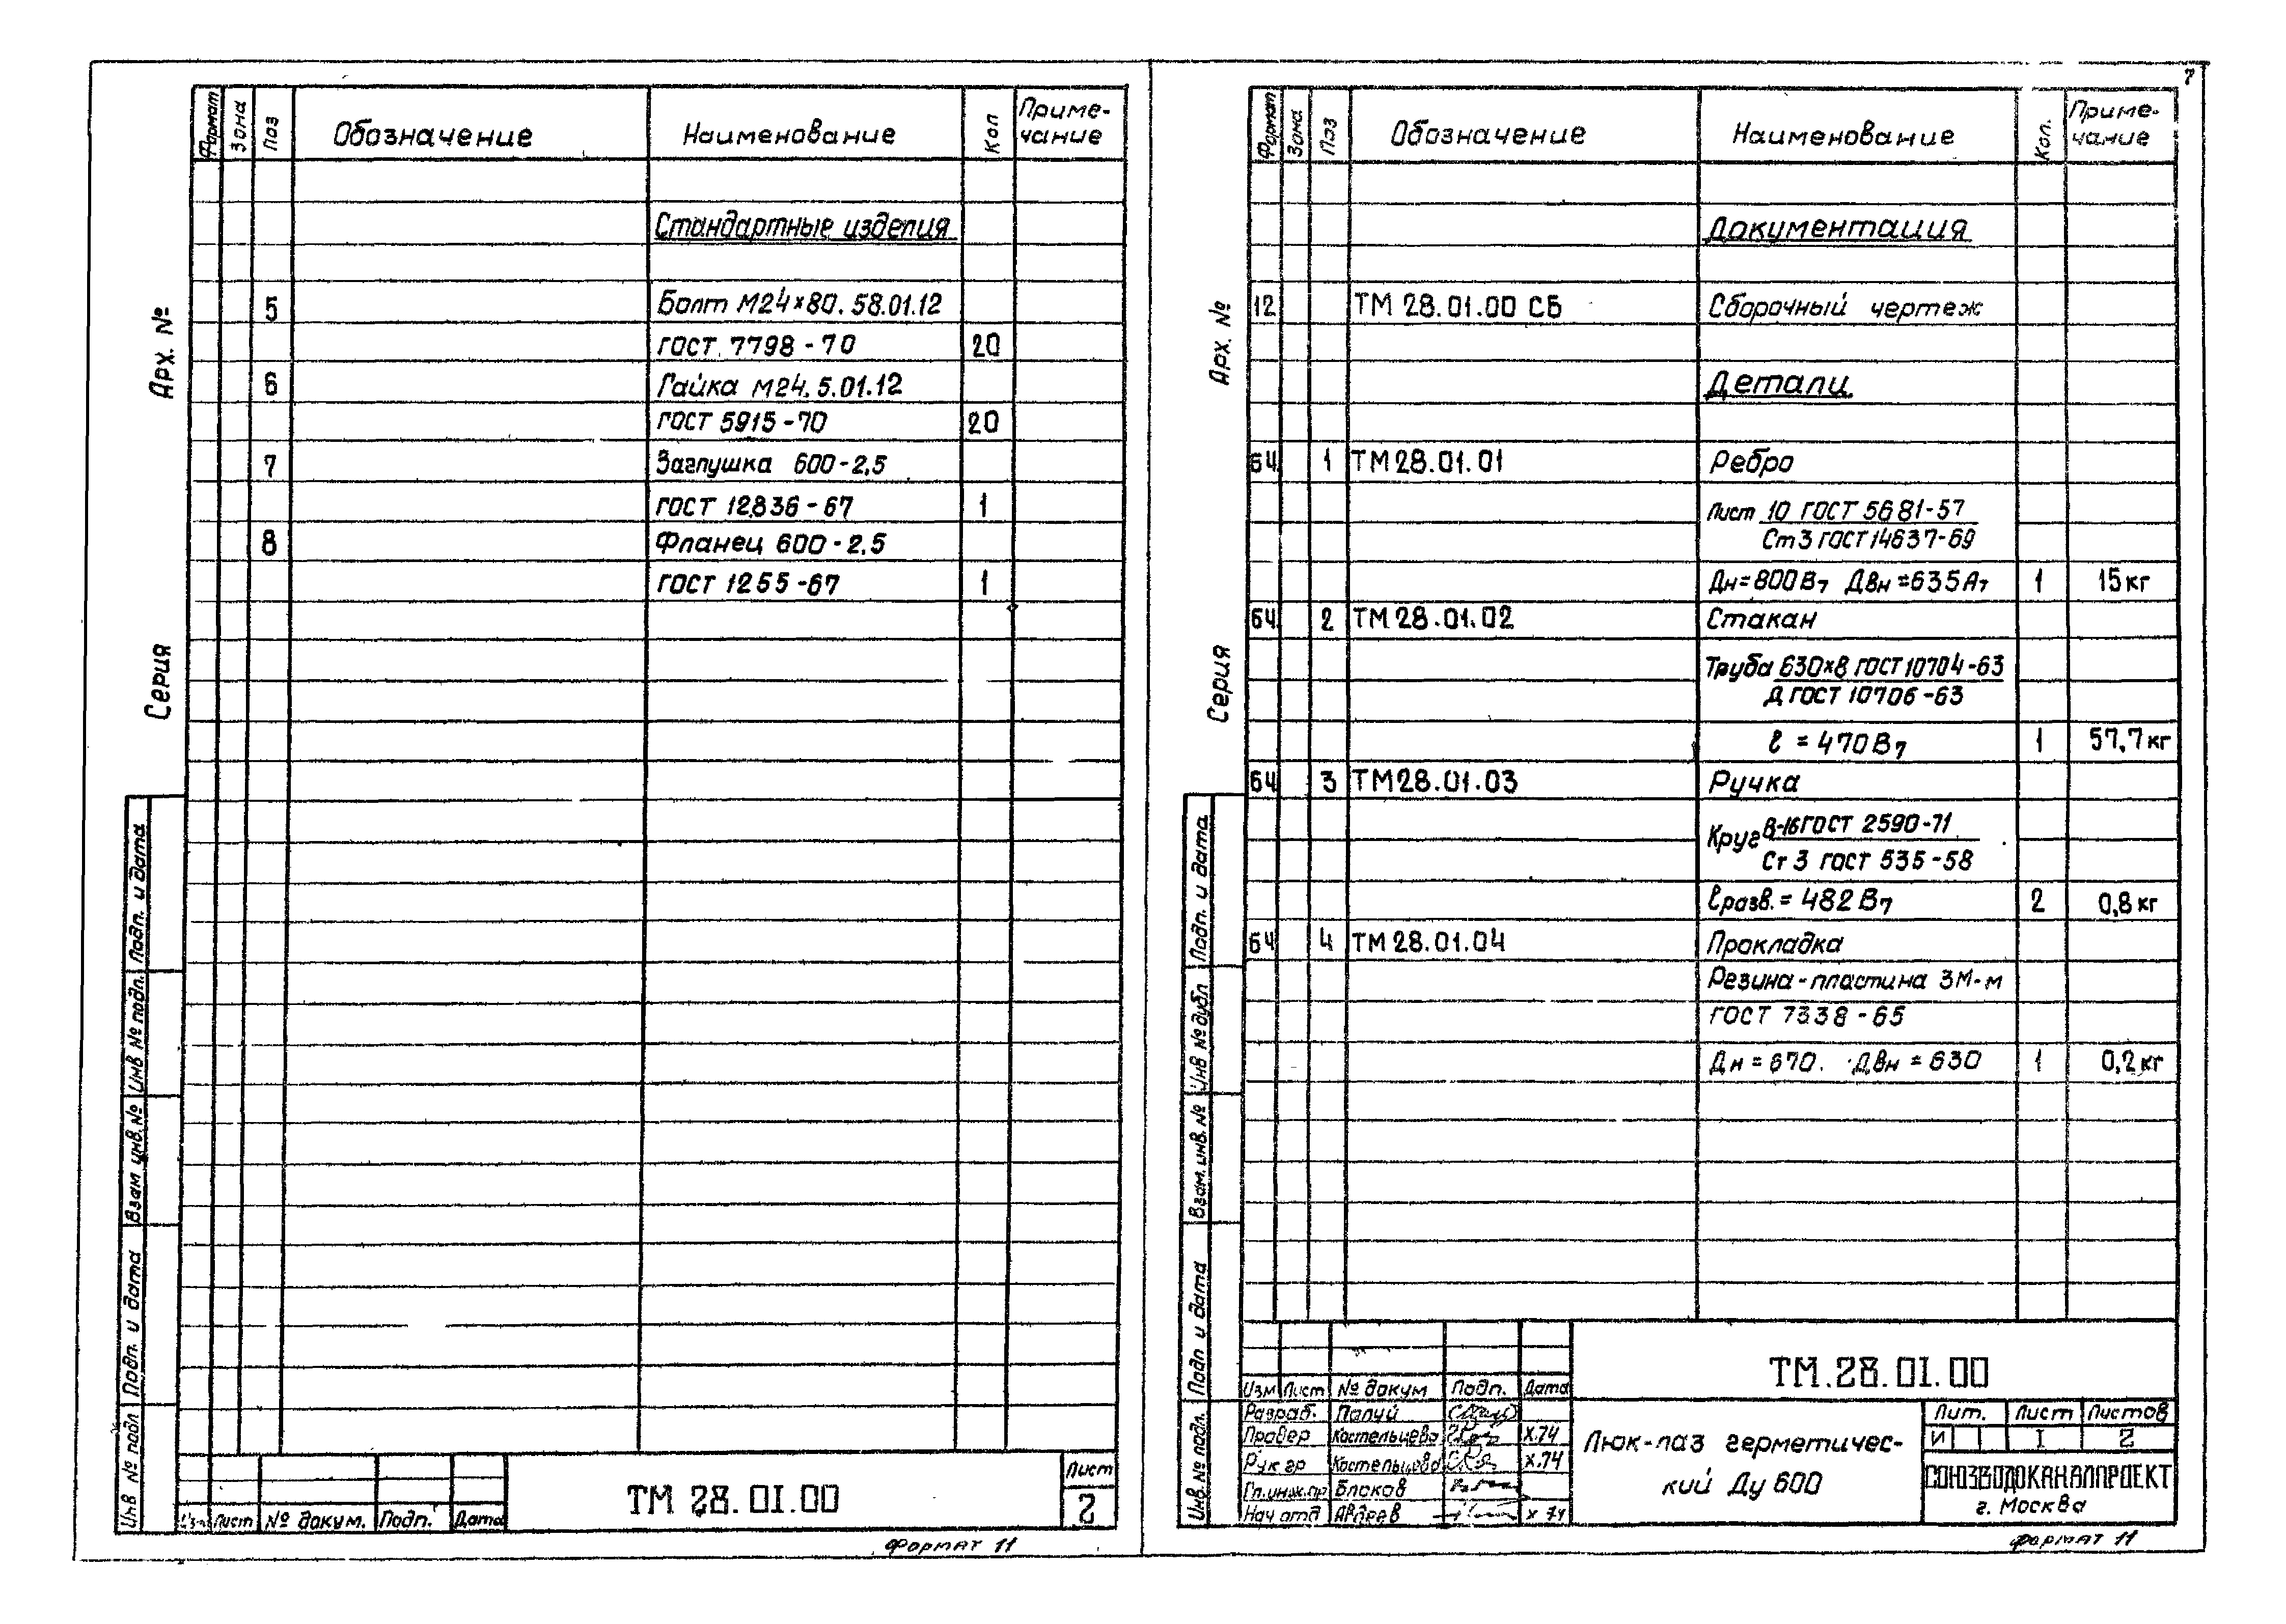 Формат Зона Поз Обозначение Наименование Кол Приме-
чание
Стандартные изделия
5 Болт М24×80. 58.01.12
ГОСТ 7798-70 20
6 Гайка М24. 5.01.12
ГОСТ 5915-70 20
7 Заглушка 600-2,5
ГОСТ 12836-67 1
8 Фланец 600-2,5
ГОСТ 1255-67 1
Арх. №
Серия
Подп. и дата
Инв № подл.
Взам инв. №
Подп. и дата
Инв № подл
Изм Лист № докум. Подп. Дата
ТМ 28.01.00
Лист
2
Формат 11
7
Формат Зона Поз Обозначение Наименование Кол. Приме-
чание
Документация
12 ТМ 28.01.00 СБ Сборочный чертеж
Детали
БЧ 1 ТМ28.01.01 Ребро
Лист 10 ГОСТ 5681-57
Ст3 ГОСТ 14637-69
Дн=800В7 Двн=635А7 1 15кг
БЧ 2 ТМ28.01.02 Стакан
Труба 630×8 ГОСТ 10704-63
Д ГОСТ 10706-63
ℓ = 470В7 1 57,7кг
БЧ 3 ТМ28.01.03 Ручка
Круг В-16 ГОСТ 2590-71
Ст 3 ГОСТ 535-58
ℓразв. = 482В7 2 0,8кг
БЧ 4 ТМ28.01.04 Прокладка
Резина-пластина 3М-м
ГОСТ 7338-65
Дн = 670. Двн = 630 1 0,2кг
Арх. №
Серия
Подп. и дата
Инв № дубл
Взам. инв. №
Подп и дата
Инв. № подл.
Изм Лист № докум Подп. Дата
Разраб. Палуй
Провер Костельцева X.74
Рук гр Костельцева X.74
Гл.инж.пр Блоков
Нач отд Авдеев X 74
ТМ.28.01.00
Люк-лаз герметичес-
кий Ду 600
Лит. Лист Листов
И 1 2
СОЮЗВОДОКАНАЛПРОЕКТ
г. Москва
Формат 11